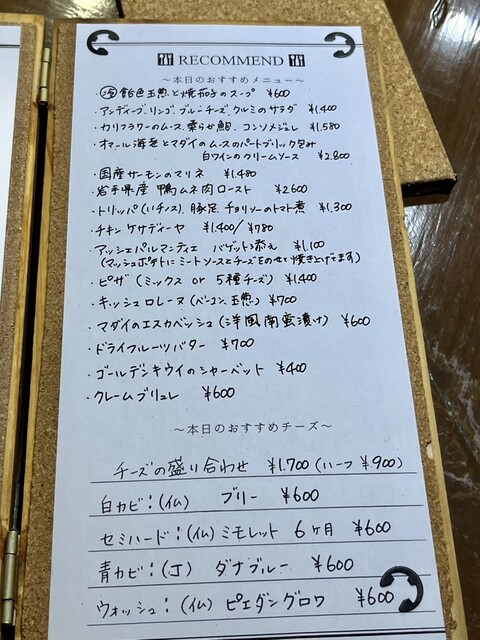 RECOMMEND
～本日のおすすめメニュー～
・㋹ 飴色玉葱と焼茄子のスープ ¥600
・アンディーブ,リンゴ,ブルーチーズ,クルミのサラダ ¥1,400
・カリフラワーのムース、柔らか鮑、コンソメジュレ ¥1,580
・オマール海老とマダイのムースのパートブリック包み
白ワインのクリームソース ¥2,800
・国産サーモンのマリネ ¥1,480
・岩手県産 鴨ムネ肉ロースト ¥2,600
・トリッパ(ハチノス)、豚足、チョリソーのトマト煮 ¥1,300
・チキン ケサディーヤ ¥1,400/¥780
・アッシェパルマンティエ バゲット添え ¥1,100
(マッシュポテトにミートソースとチーズをのせ焼き上げてます)
・ピザ (ミックス or 5種チーズ) ¥1,400
・キッシュロレーヌ(ベーコン、玉葱) ¥700
・マダイのエスカベッシュ(洋風南蛮漬け) ¥600
・ドライフルーツバター ¥700
・ゴールデンキウイのシャーベット ¥400
・クレームブリュレ ¥600
～本日のおすすめチーズ～
チーズの盛り合わせ ¥1,700(ハーフ ¥900)
白カビ:(仏) ブリー ¥600
セミハード:(仏)ミモレット 6ヶ月 ¥600
青カビ:(丁) ダナブルー ¥600
ウォッシュ:(仏)ピエダングロワ ¥600